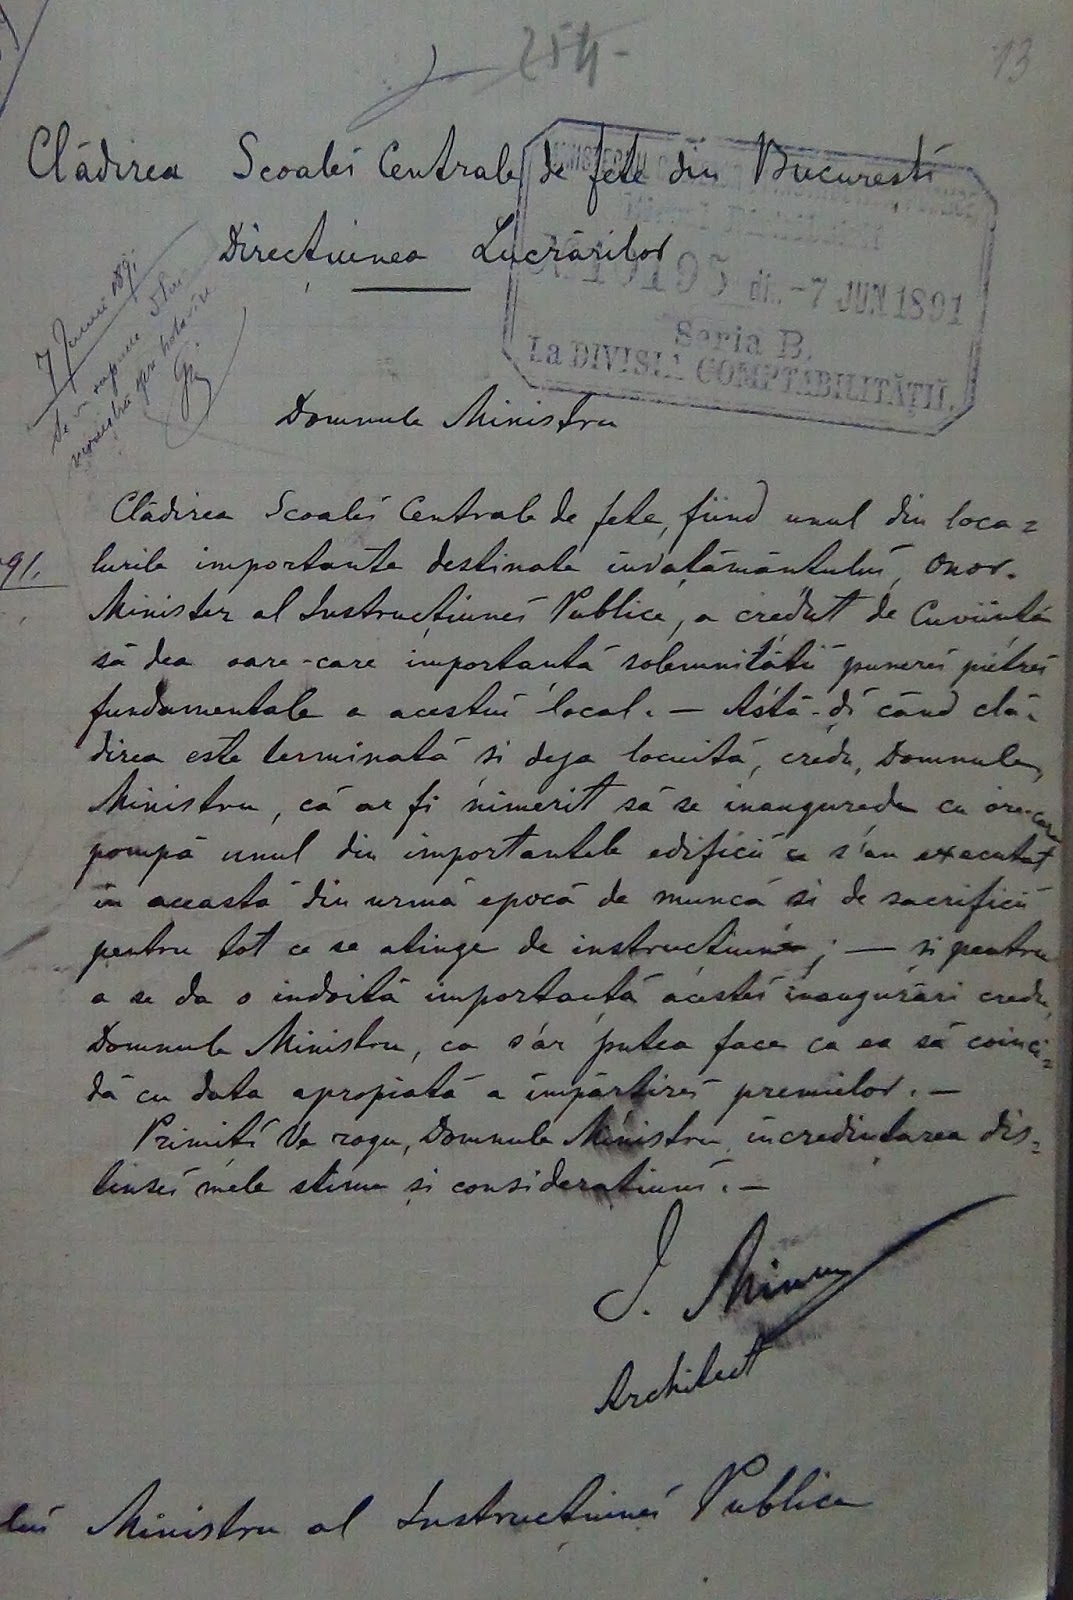 254-
13
Clădirea Scoalei Centrale de fete din Bucuresti
Direcțiunea Lucrărilor
10195 din -7 JUN 1891
Seria B.
La DIVISIA COMPTABILITĂȚII.
7 Junii 1891
Domnule Ministru
Clădirea Scoalei Centrale de fete, fiind unul din loca=
lurile importante destinate invățământului, Onor.
91.
Minister al Instrucțiunei Publice, a credut de Cuviintă
să dea oare-care importantă solemnitătii punerei pietrei
fundamentale a acestui local. — Astă-di când clă-
direa este terminată si deja locuită, credu, Domnule
Ministru, că ar fi nimerit să se inaugurede cu óre-care
pompă unul din importantele edificii ce s'au executat
in aceastá din urmă epocă de muncă si de sacrificii
pentru tot ce se atinge de instructiune; — si pentru
a se da o indoită importanță acestei inaugurări credu,
Domnule Ministru, ca s'ar putea face ca ea să coinci=
dă cu data apropiată a impărtirei premielor. —
Primiti Ve rogu, Domnule Ministru incredintarea dis=
tinsei mele stime si consideratiuni. —
I. Mincu
Architect
lui Ministru al Instrucțiunei Publice